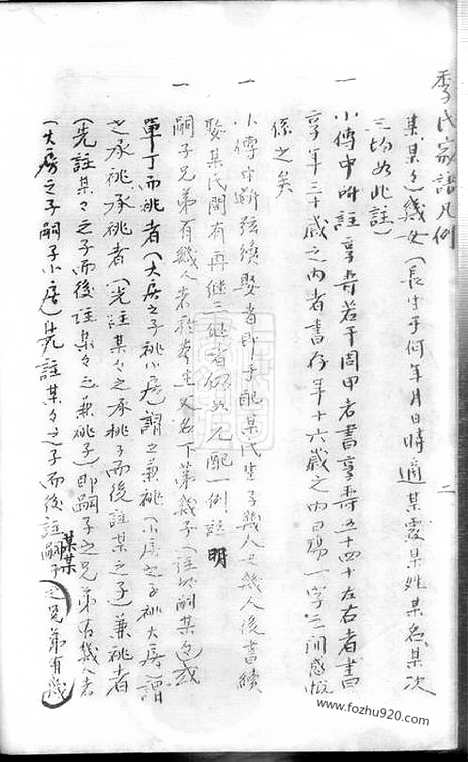 季氏家譜凡例
二
集某々幾女(長生于何年月日時適某處某姓某名某次
三均如此註)
一 小傳中附註享壽若干周甲右書享壽五十四十左右者書
享年三十歲之內者書存年十六歲之內曰殤一字之間感慨
係之矣
一 小傳中斷弦續娶者即于配某氏生子幾人女幾人後書續
娶某氏間有再継三継者仍如元配一例註明
一 嗣子兄弟有幾人者於本生父名下第幾子(註出嗣某々)或
單丁而祧者(大房之子祧小房)謂之兼祧(小房之子祧大房)謂
之承祧承祧者(先註某々之承祧子而後註某之子)兼祧者
(先註某々之子而後註某々之兼祧子)即嗣子之兄弟有幾人者
(大房之子嗣子小房)先註某々之子而後註某某嗣子之兄弟有幾
www.fozhu920.com